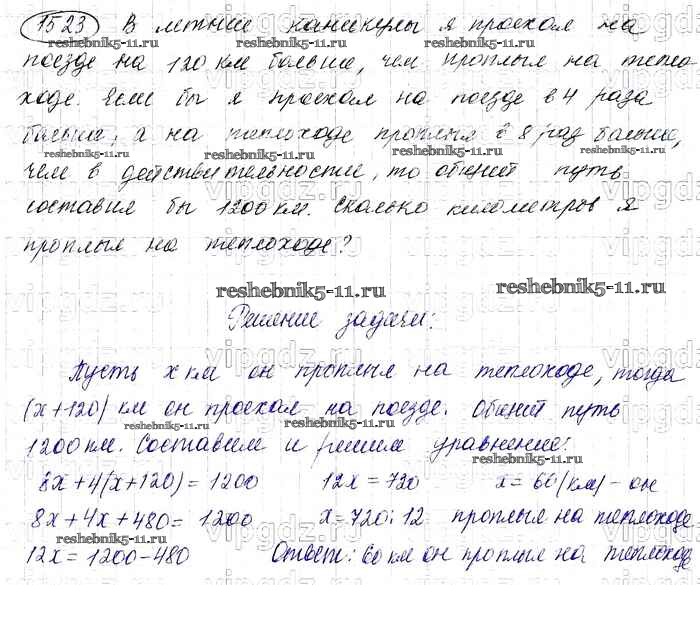 1523 В летние каникулы я проехал на
поезде на 120 км больше, чем проплыл на тепло-
ходе. Если бы я проехал на поезде в 4 раза
больше, а на теплоходе проплыл в 8 раз больше,
чем в действительности, то общий путь
составил бы 1200 км. Сколько километров я
проплыл на теплоходе?
reshebnik5-11.ru reshebnik5-11.ru
Решение задачи:
Пусть x км он проплыл на теплоходе, тогда
(x+120) км он проехал на поезде. Общий путь
1200 км. Составим и решим уравнение:
8x+4(x+120)=1200 12x=720 x=60(км)-он
8x+4x+480=1200 x=720:12 проплыл на теплоходе
12x=1200-480 Ответ: 60 км он проплыл на теплоходе